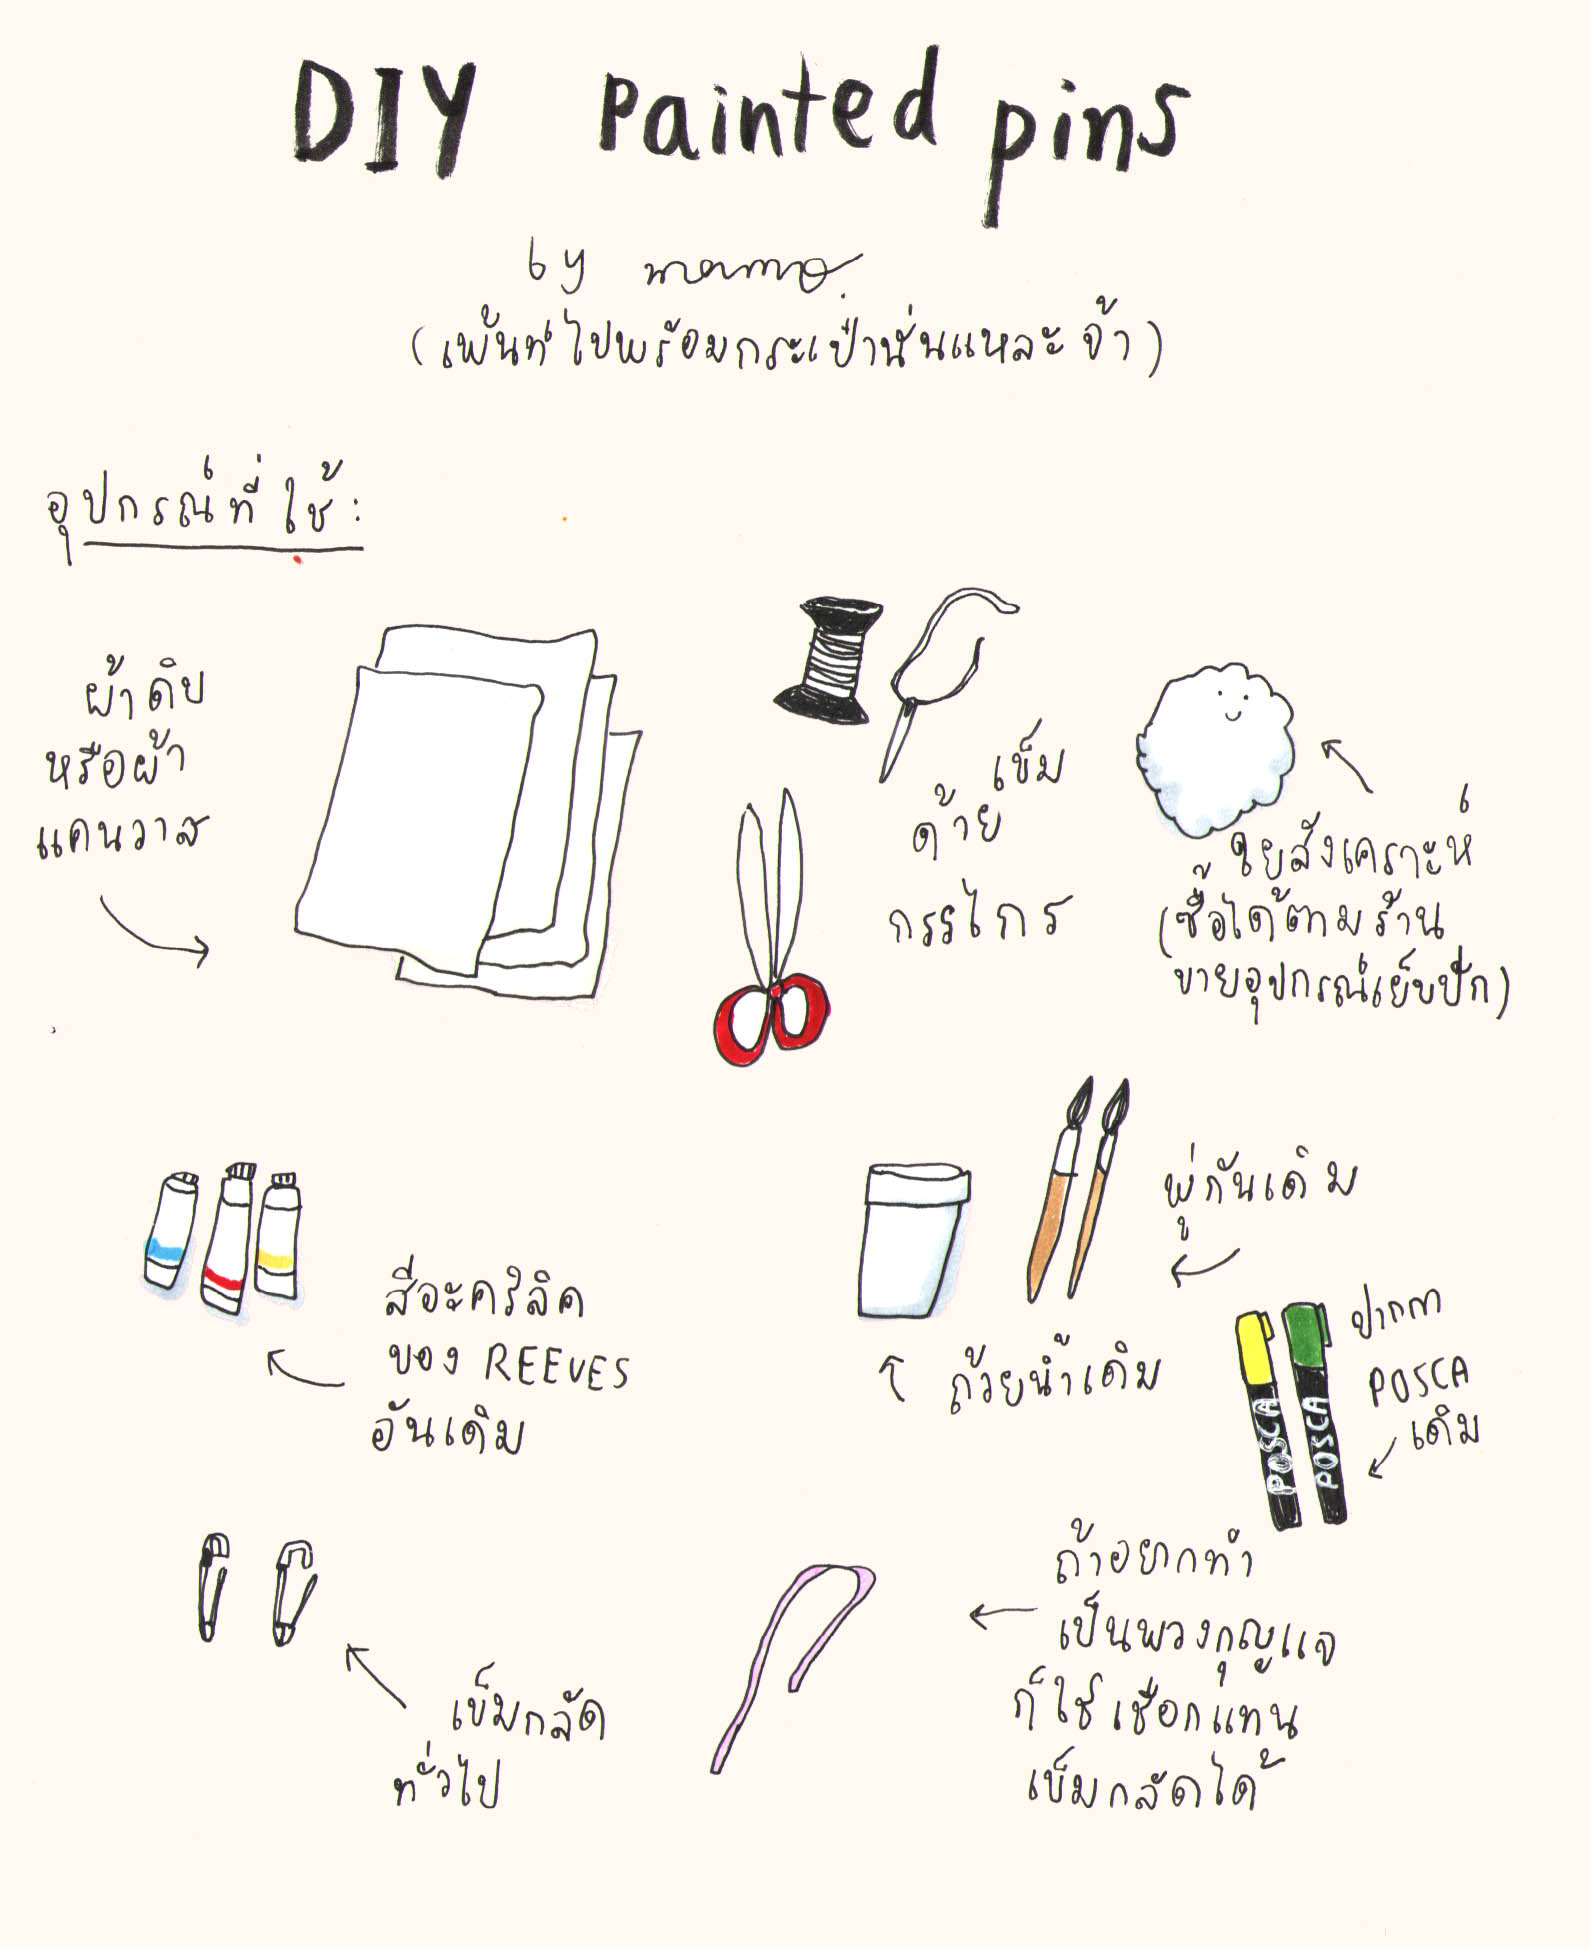 DIY Painted pins
by
(เพ้นท์ไปพร้อมกระเป๋านั่นแหละจ้า)
อุปกรณ์ที่ใช้:
ผ้าดิบ
หรือผ้า
แคนวาส
เข็ม
ด้าย
กรรไกร
ใยสังเคราะห์
(ซื้อได้ตามร้าน
ขายอุปกรณ์เย็บปัก)
สีอะคริลิค
ของ REEVES
อันเดิม
พู่กันเดิม
ถ้วยน้ำเดิม
ปากกา
POSCA
เดิม
POSCA
POSCA
เข็มกลัด
ทั่วไป
ถ้าอยากทำ
เป็นพวงกุญแจ
ก็ใช้เชือกแทน
เข็มกลัดได้